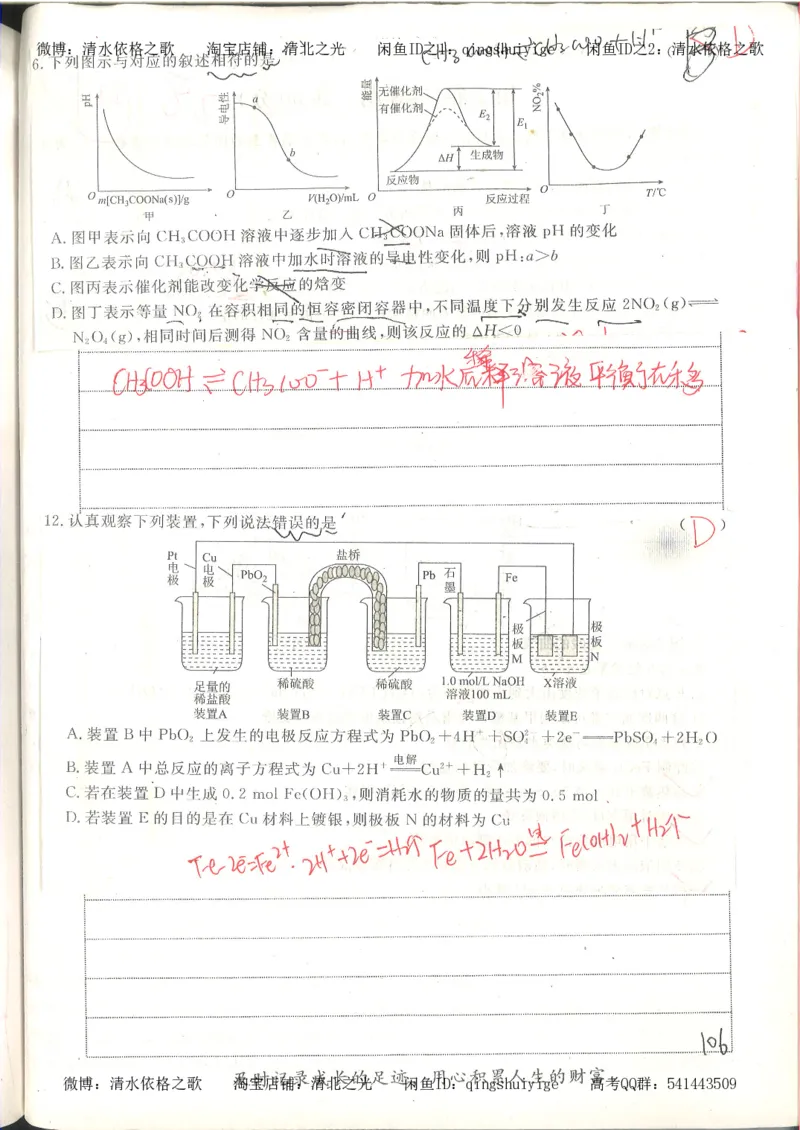 微博：清水依格之歌 淘宝店铺：清北之光 闲鱼ID之1：qingshuiyige 闲鱼ID之2：清水依格之歌
6.下列图示与对应的叙述相符的是
pH
O m[CH₃COONa(s)]/g
甲
导电性
a
b
O V(H₂O)/mL
乙
能量
无催化剂
有催化剂
E₂
E₁
ΔH 生成物
反应物
O 反应过程
丙
NO₂%
O T/℃
丁
A.图甲表示向 CH₃COOH 溶液中逐步加入 CH₃COONa 固体后,溶液 pH 的变化
B.图乙表示向 CH₃COOH 溶液中加水时溶液的导电性变化,则 pH:a>b
C.图丙表示催化剂能改变化学反应的焓变
D.图丁表示等量 NO₂ 在容积相同的恒容密闭容器中,不同温度下分别发生反应 2NO₂(g)⇌
N₂O₄(g),相同时间后测得 NO₂ 含量的曲线,则该反应的 ΔH<0
CH₃COOH ⇌ CH₃COO⁻ + H⁺ 加水后稀释溶液 平衡
12.认真观察下列装置,下列说法错误的是 ( D )
Pt电极
Cu电极
PbO₂
盐桥
Pb
石墨
Fe
极板M
极板N
足量的稀盐酸
稀硫酸
稀硫酸
1.0 mol/L NaOH溶液100 mL
X溶液
装置A 装置B 装置C 装置D 装置E
A.装置 B 中 PbO₂ 上发生的电极反应方程式为 PbO₂+4H⁺+SO₄²⁻+2e⁻══PbSO₄+2H₂O
B.装置 A 中总反应的离子方程式为 Cu+2H⁺ ══电解══ Cu²⁺+H₂↑
C.若在装置 D 中生成 0.2 mol Fe(OH)₃,则消耗水的物质的量共为 0.5 mol
D.若装置 E 的目的是在 Cu 材料上镀银,则极板 N 的材料为 Cu
Fe-2e⁻=Fe²⁺. 2H⁺+2e⁻=H₂↑ Fe+2H₂O 电解 Fe(OH)₂+H₂↑
106
及时记录成长的足迹 用心积累人生的财富
微博：清水依格之歌 淘宝店铺：清北之光 闲鱼ID：qingshuiyige 高考QQ群：541443509